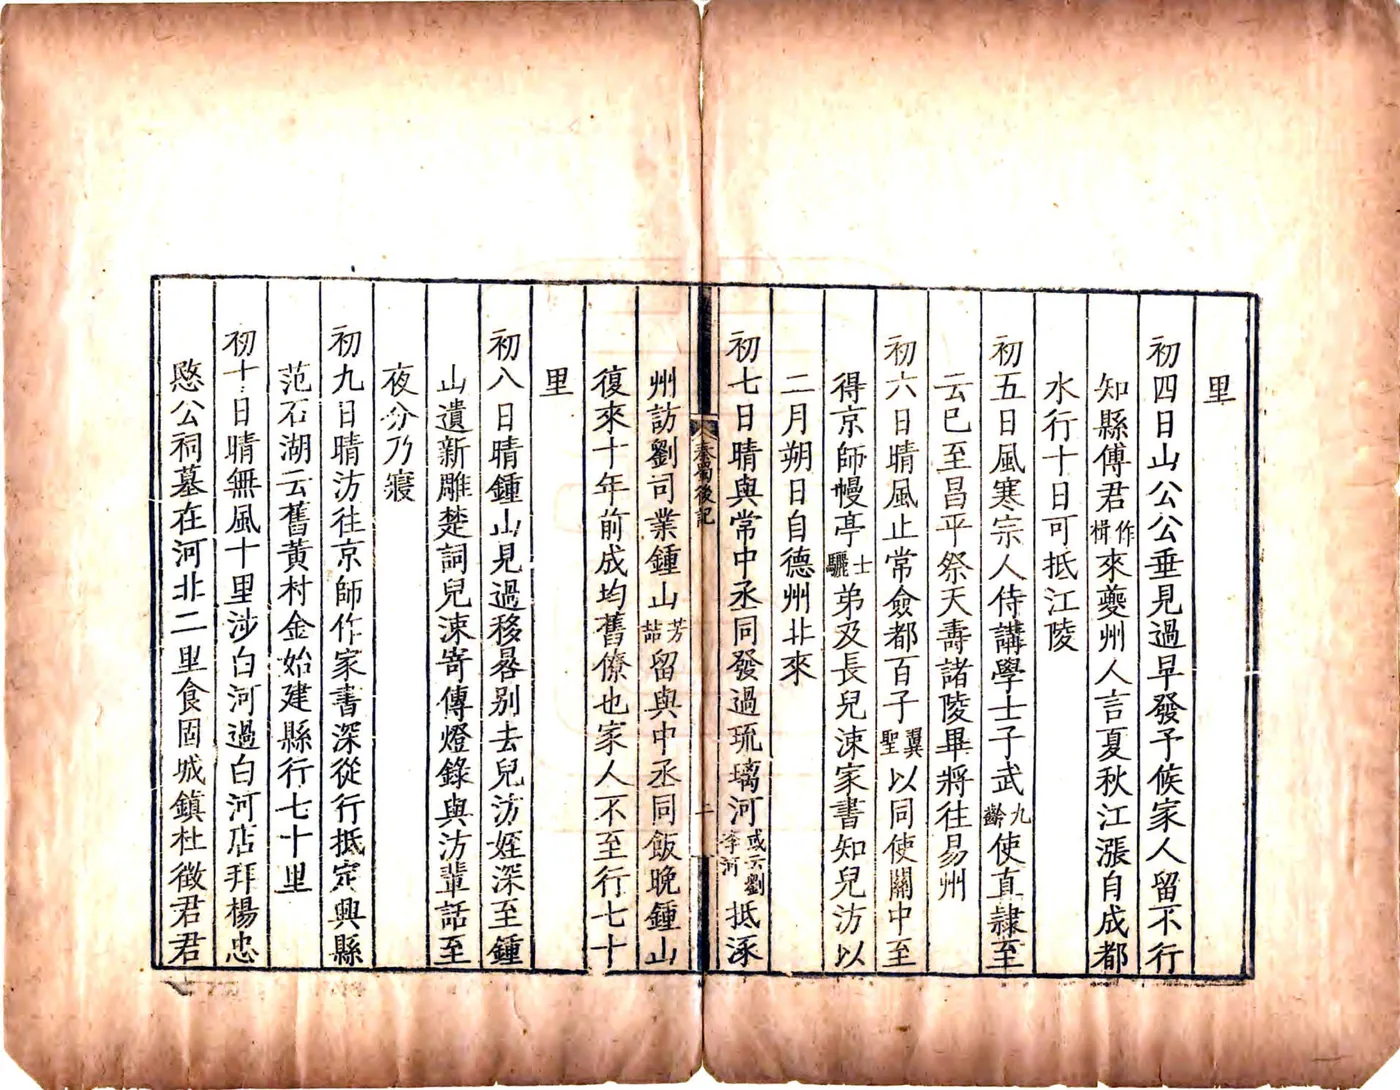 里
初四日山公公垂見過早發予候家人留不行
知縣傅君作楫來夔州人言夏秋江漲自成都
水行十日可抵江陵
初五日風寒宗人侍講學士子武九齡使直隸至
云已至昌平祭天壽諸陵畢將往易州
初六日晴風止常僉都百子翼聖以同使關中至
得京師幔亭士驪弟及長兒涑家書知兒汸以
二月朔日自德州北來
初七日晴與常中丞同發過琉璃河或云劉李河抵涿
州訪劉司業鍾山芳喆留與中丞同飯晚鍾山
復來十年前成均舊僚也家人不至行七十
里
初八日晴鍾山見過移晷别去兒汸姪深至鍾
山遺新雕楚詞兒涑寄傳燈錄與汸輩話至
夜分乃寢
初九日晴汸往京師作家書深從行抵定興縣
范石湖云舊黃村金始建縣行七十里
初十日晴無風十里涉白河過白河店拜楊忠
愍公祠墓在河北二里食固城鎮杜徵君君
秦蜀後記
二